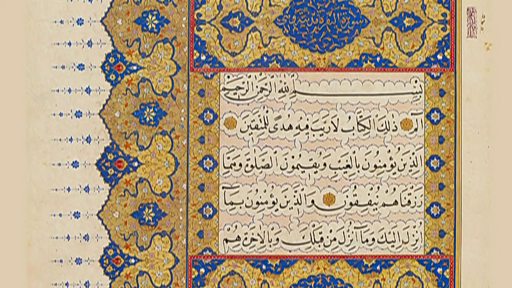 بِسْمِ اللهِ الرَّحْمٰنِ الرَّحِيمِ
الم ذٰلِكَ الْكِتَابُ لَا رَيْبَ فِيهِ هُدًى لِلْمُتَّقِينَ
الَّذِينَ يُؤْمِنُونَ بِالْغَيْبِ وَيُقِيمُونَ الصَّلٰوةَ وَمِمَّا
رَزَقْنَاهُمْ يُنْفِقُونَ وَالَّذِينَ يُؤْمِنُونَ بِمَا
اُنْزِلَ اِلَيْكَ وَمَا اُنْزِلَ مِنْ قَبْلِكَ وَبِالْاٰخِرَةِ هُمْ